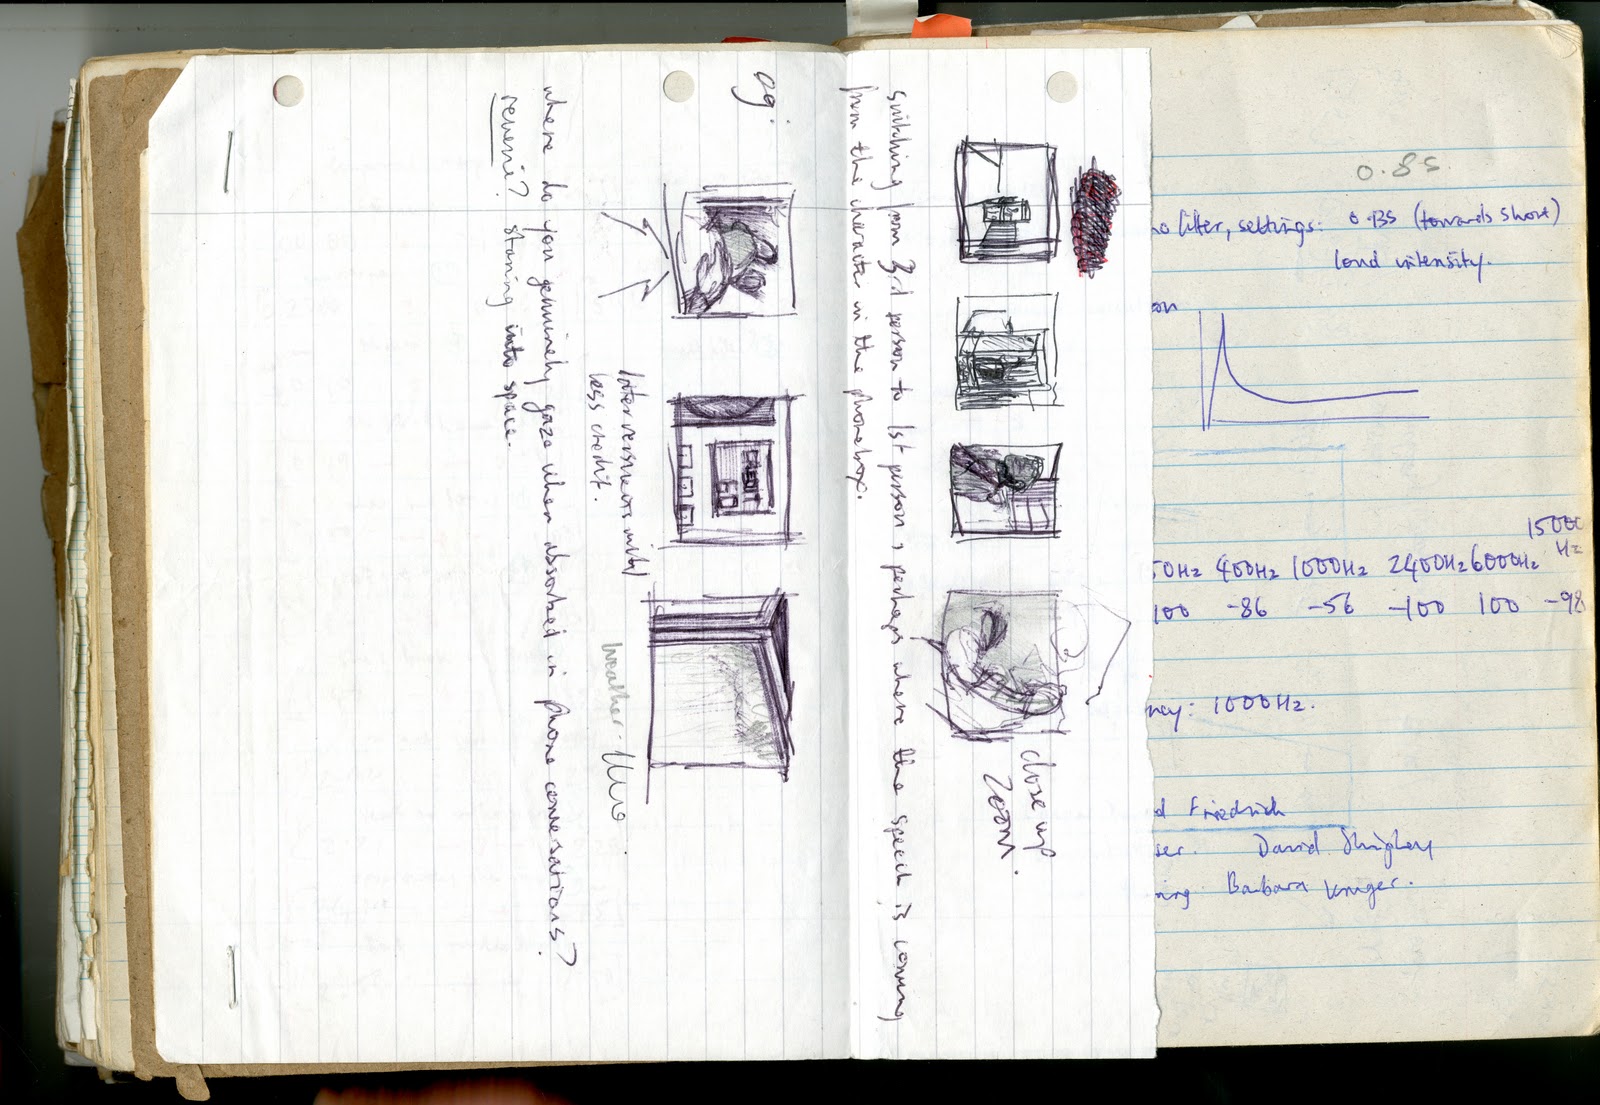 close up
zoom.
switching from 3rd person to 1st person, perhaps where the speech is coming
from the character in the phonebox.
eg:
CREDIT
60
later versions with
less credit.
weather.
where do you genuinely gaze when absorbed in phone conversations?
reverie? staring into space.
0.8s
no filter, settings: 0.13s (towards short)
loud intensity.
50Hz 400Hz 1000Hz 2400Hz 6000Hz 15000 Hz
100 -86 -56 -100 100 -98
1000Hz.
Friedrich
David Shrigley
Barbara Kruger.